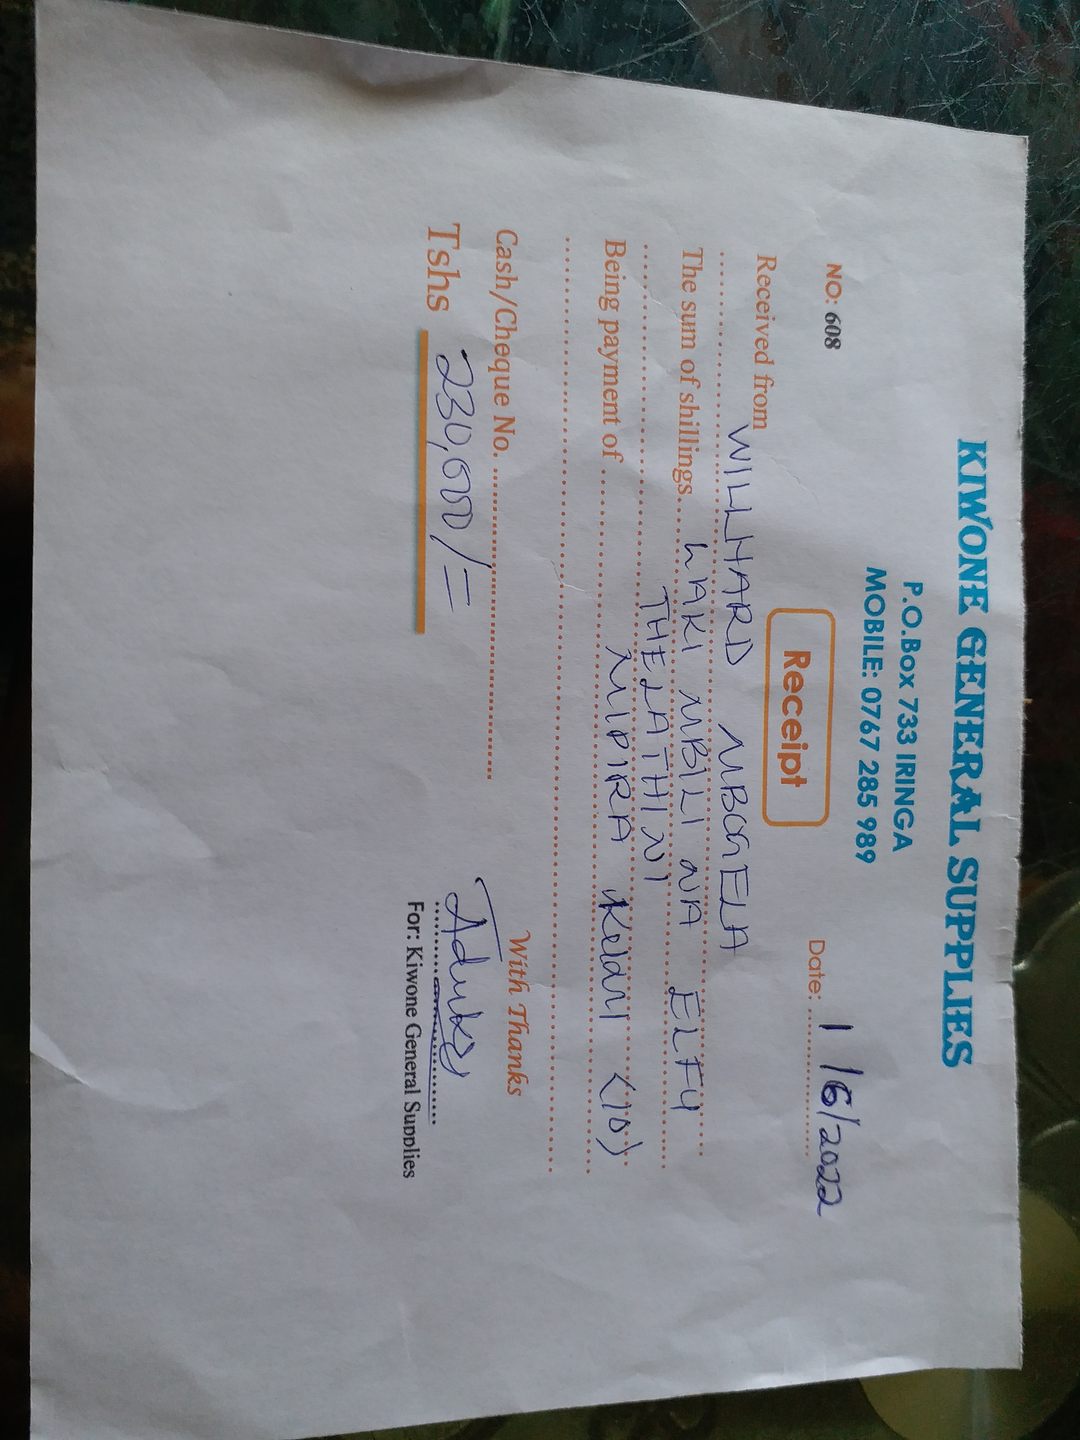 KIWONE GENERAL SUPPLIES
P.O.Box 733 IRINGA
MOBILE: 0767 285 989
NO: 608
Receipt
Date: 1/6/2022
Received from WILLHARD MBOGELA
The sum of shillings LAKI MBILI NA ELFU
THELATHINI
Being payment of MIPIRA (10)
Cash/Cheque No.
Tshs 230,000/=
With Thanks
For: Kiwone General Supplies